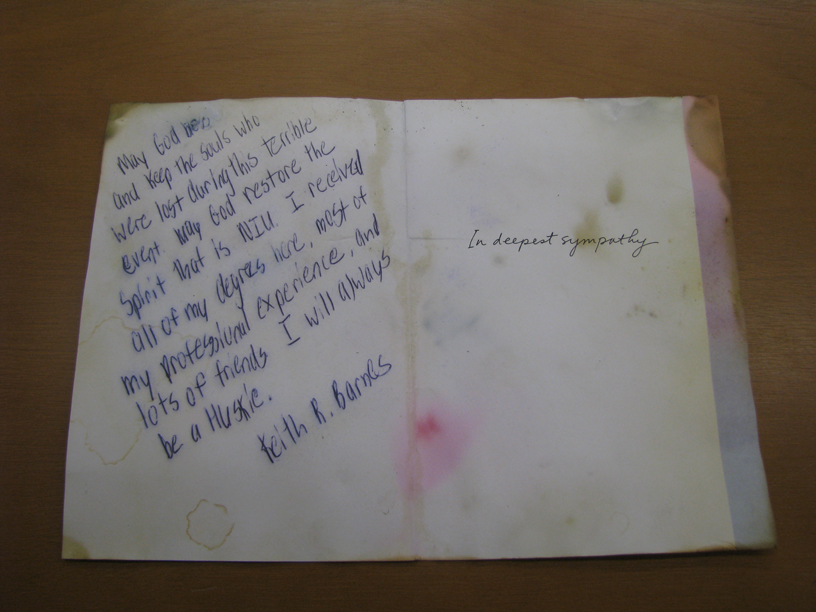 May God
and keep the souls who
were lost during this terrible
event. May God restore the
spirit that is NIU. I received
all of my degrees here, most of
my professional experience, and
lots of friends I will always
be a Huskie.
Keith R. Barnes
In deepest sympathy